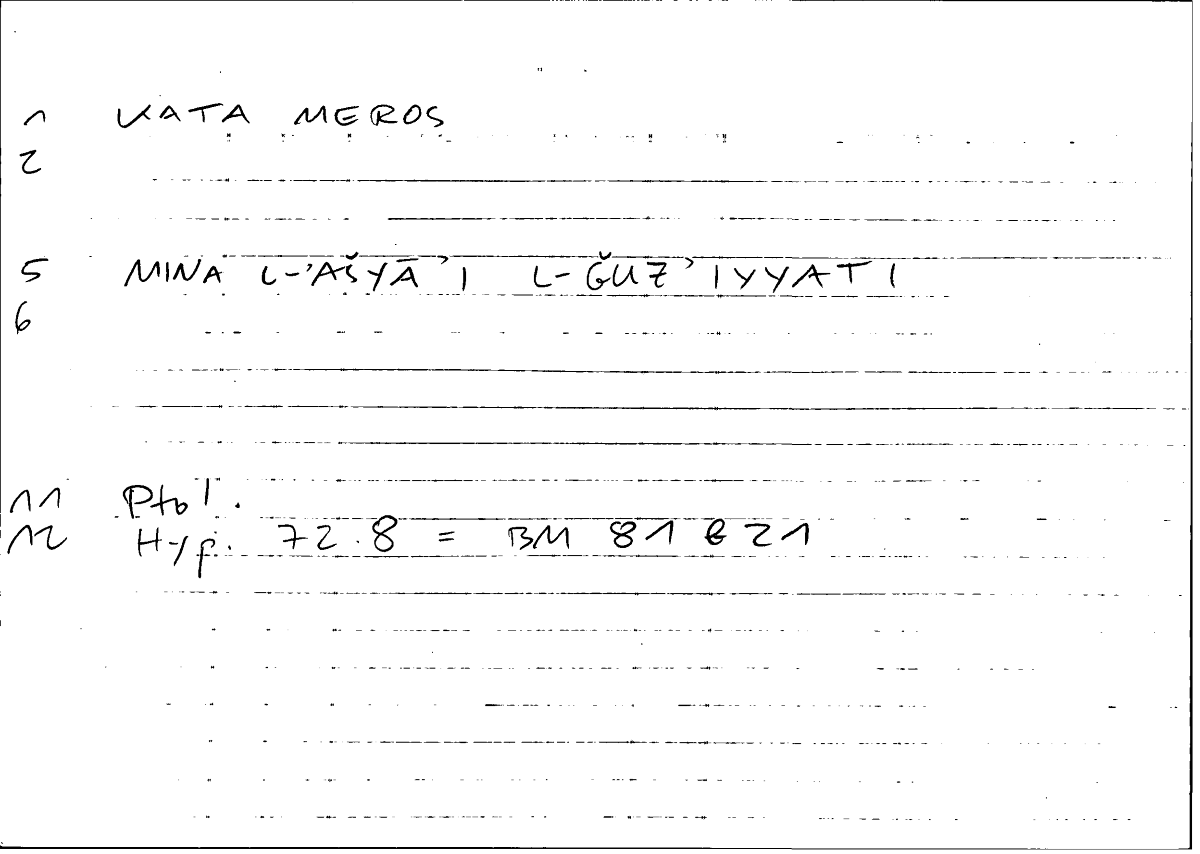 1 KATA MEROS
2
5 MINA L-'AŠYĀ'I L-ǦUZ'IYYATI
6
11 Ptol.
12 Hyp. 72.8 = BM 81 21